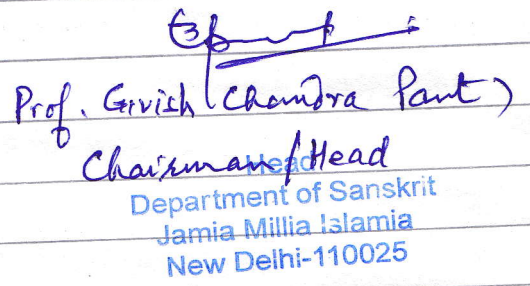 Prof. Girish Chandra Pant)
Chairman/Head
Head
Department of Sanskrit
Jamia Millia Islamia
New Delhi-110025